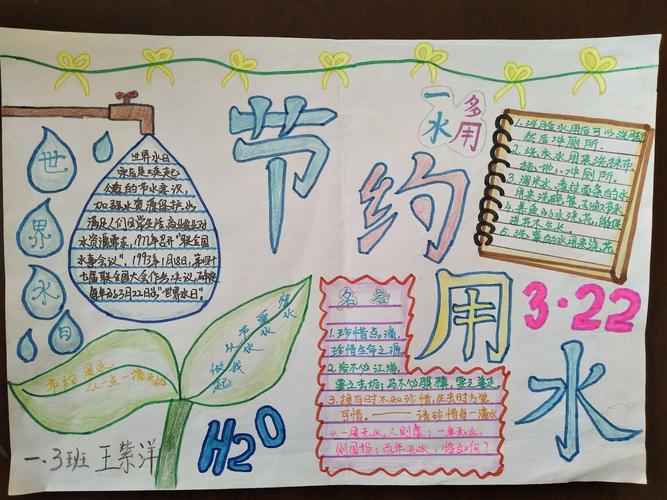 节约用水
一水多用
3·22
世界水日
世界水日
宗旨是唤起
公众的节水意识,
加强水资源保护。为
满足人们日常生活、商业和农业对
水资源需求,
联合国
水事会议"。1993年1月18日,第四十
七届联合国大会作出决议,
每年的3月22日为"世界水日"。
1.洗脸水用后可以洗脚,
然后冲厕所。
2.洗衣水用来洗拖布、
拖地、冲厕所。
3.淘米水、煮过面条的水
用来洗碗筷,
4.养鱼的水浇花,能促
进花木生长。
5.洗菜的水用来浇花
名言
1.珍惜点滴,
珍惜生命之源。
2.
3.拥有时不知珍惜,失去时方觉
可惜。——请珍惜每一滴水
4.一周无水,人则虚;一年无水,
则国损;百年无水,
惜水
爱水
节水
从我
做起
节约用水
从一点一滴开始
H2O
一.3班 王紫洋